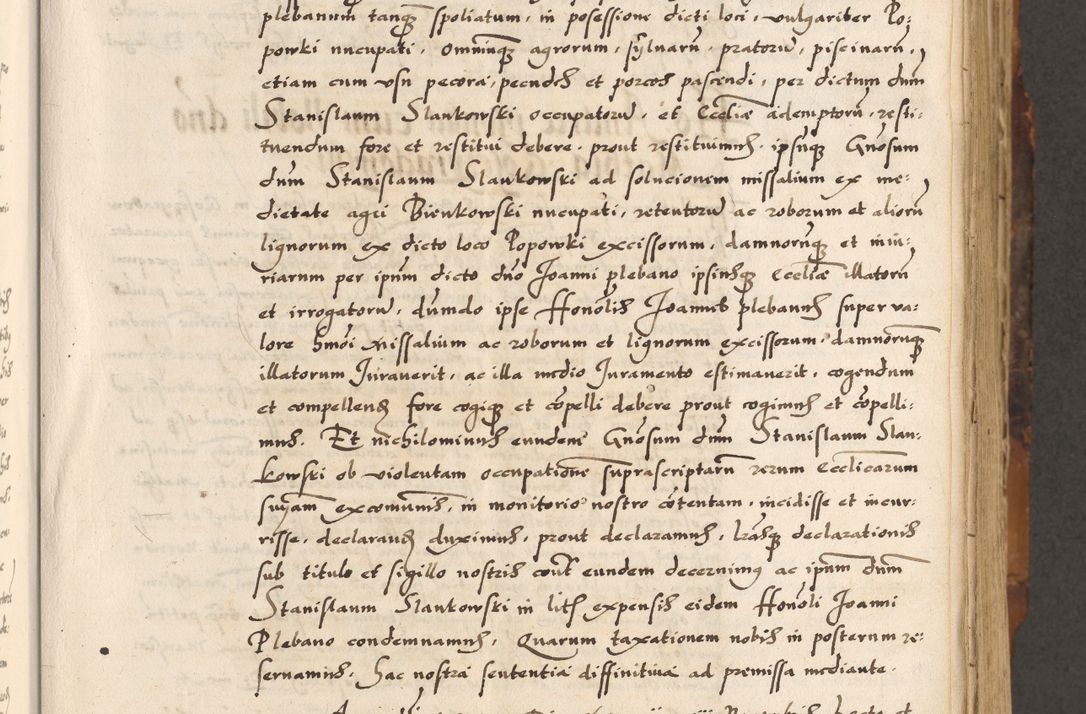 plebanum tanq̃ spoliatum, in posessione dicti loci, vulgariter Po:
powki nucupati, omniuq̃ agrorum, sÿluarũ, pratorũ, piscinarũ,
etiam cum vsu pecora, pecudes et porcos pascendi, per dictum dnm
Stanislaum Slankowski occupatorũ, et Eccliæ ademptorũ, resti:
tuendum fore et restitui debere, prout restituimus, ipsuq̃ Gnosum
dnm Stanislaum Slankowski ad solucionem missalium ex me:
dietate agri Bienkowski nucupati, retentorũ ac roborum et aliorũ
lignorum ex dicto loco Popowki excissorum, damnorũq̃ et iniu:
riarum per ipum dicto dno Joanni plebano ipsiusq̃ Eccliæ illatorũ
et irrogatorũ, dumdo ipse Honolis Joannes plebanus super va:
lore hmoi missalium ac roborum et lignorum excissorum, damnorumq̃
illatorum Jurauerit, ac illa medio Juramento estimauerit, cogendum
et compellend fore cogiq̃ et cõpelli debere prout cogimus et cõpelli:
mus. Et nichilominus eundem Gnosum dnm Stanislaum Slan:
kowski ob violentam occupatione suprascriptarũ rerum Ecclicarum
suÿam excomunis, in monitorio nostro cõtentam, incidisse et incur:
risse, declarand duximus, prout declaramus, lrasq̃ declarationis
sub titulo et sigillo nostris cont eundem decernimq ac ipum dnm
Stanislaum Slankowski in litis expensis eidem Honoli Joanni
Plebano condemnamus, Quarum taxationem nobis in posterum re:
seruamus, hac nostra sententia diffinitiua ad premissa mediante.